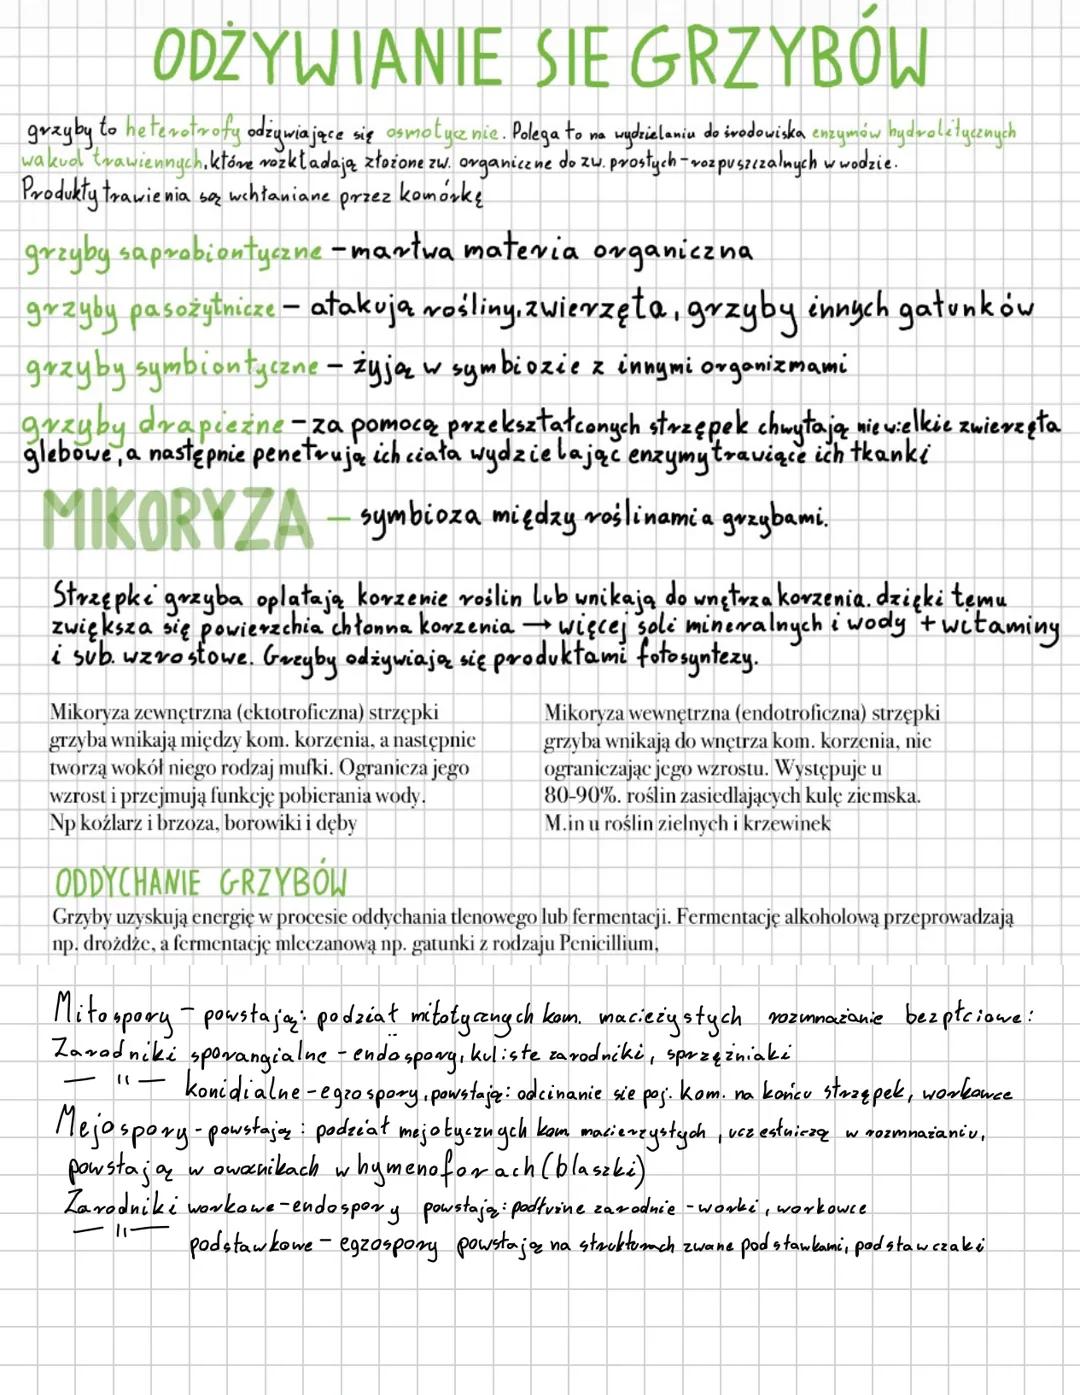 ODŻYWIANIE SIE GRZYBÓW
grzyby to heterotrofy odżywiające się osmotycznie. Polega to na wydzielaniu do środowiska enzymów hydrolitycznych
wakuol trawiennych, które rozkładają złożone zw. organiczne do zw. prostych - rozpuszczalnych w wodzie.
Produkty trawienia są wchłaniane przez komórkę
grzyby saprobiontyczne - martwa materia organiczna
grzyby pasożytnicze - atakują rośliny, zwierzęta, grzyby innych gatunków
grzyby symbiontyczne - żyją w symbiozie z innymi organizmami
grzyby drapieżne - za pomocą przekształconych strzępek chwytają niewielkie zwierzęta
glebowe, a następnie penetrują ich ciała wydzielając enzymy trawiące ich tkanki
MIKORYZA - symbioza między roślinami a grzybami.
Strzępki grzyba oplatają korzenie roślin lub wnikają do wnętrza korzenia. dzięki temu
zwiększa się powierzchia chłonna korzenia → więcej soli mineralnych i wody + witaminy
i sub. wzrostowe. Grzyby odżywiają się produktami fotosyntezy.
Mikoryza zewnętrzna (ektotroficzna) strzępki
grzyba wnikają między kom. korzenia, a następnie
tworzą wokół niego rodzaj mufki. Ogranicza jego
wzrost i przejmują funkcję pobierania wody.
Np koźlarz i brzoza, borowiki i dęby
Mikoryza wewnętrzna (endotroficzna) strzępki
grzyba wnikają do wnętrza kom. korzenia, nie
ograniczając jego wzrostu. Występuje u
80-90%. roślin zasiedlających kulę ziemska.
M.in u roślin zielnych i krzewinek
ODDYCHANIE GRZYBÓW
Grzyby uzyskują energię w procesie oddychania tlenowego lub fermentacji. Fermentację alkoholową przeprowadzają
np. drożdże, a fermentację mleczanową np. gatunki z rodzaju Penicillium,
Mitospory - powstają: podział mitotycznych kom. macieżystych rozmnażanie bezpłciowe:
Zarodniki sporangialne - endospory, kuliste zarodniki, sprzężniaki
— " — konidialne - egzospory, powstają: odcinanie sie poj. kom. na końcu strzępek, workowce
Mejospory - powstają: podział mejotycznych kom macierzystych, uczestniczą w rozmnażaniu,
powstają w owocnikach w hymenoforach (blaszki)
Zarodniki workowe - endospory powstają: podłużne zarodnie - worki, workowce
— " —
podstawkowe - egzospory powstają na strukturach zwane podstawkami, podstawczaki